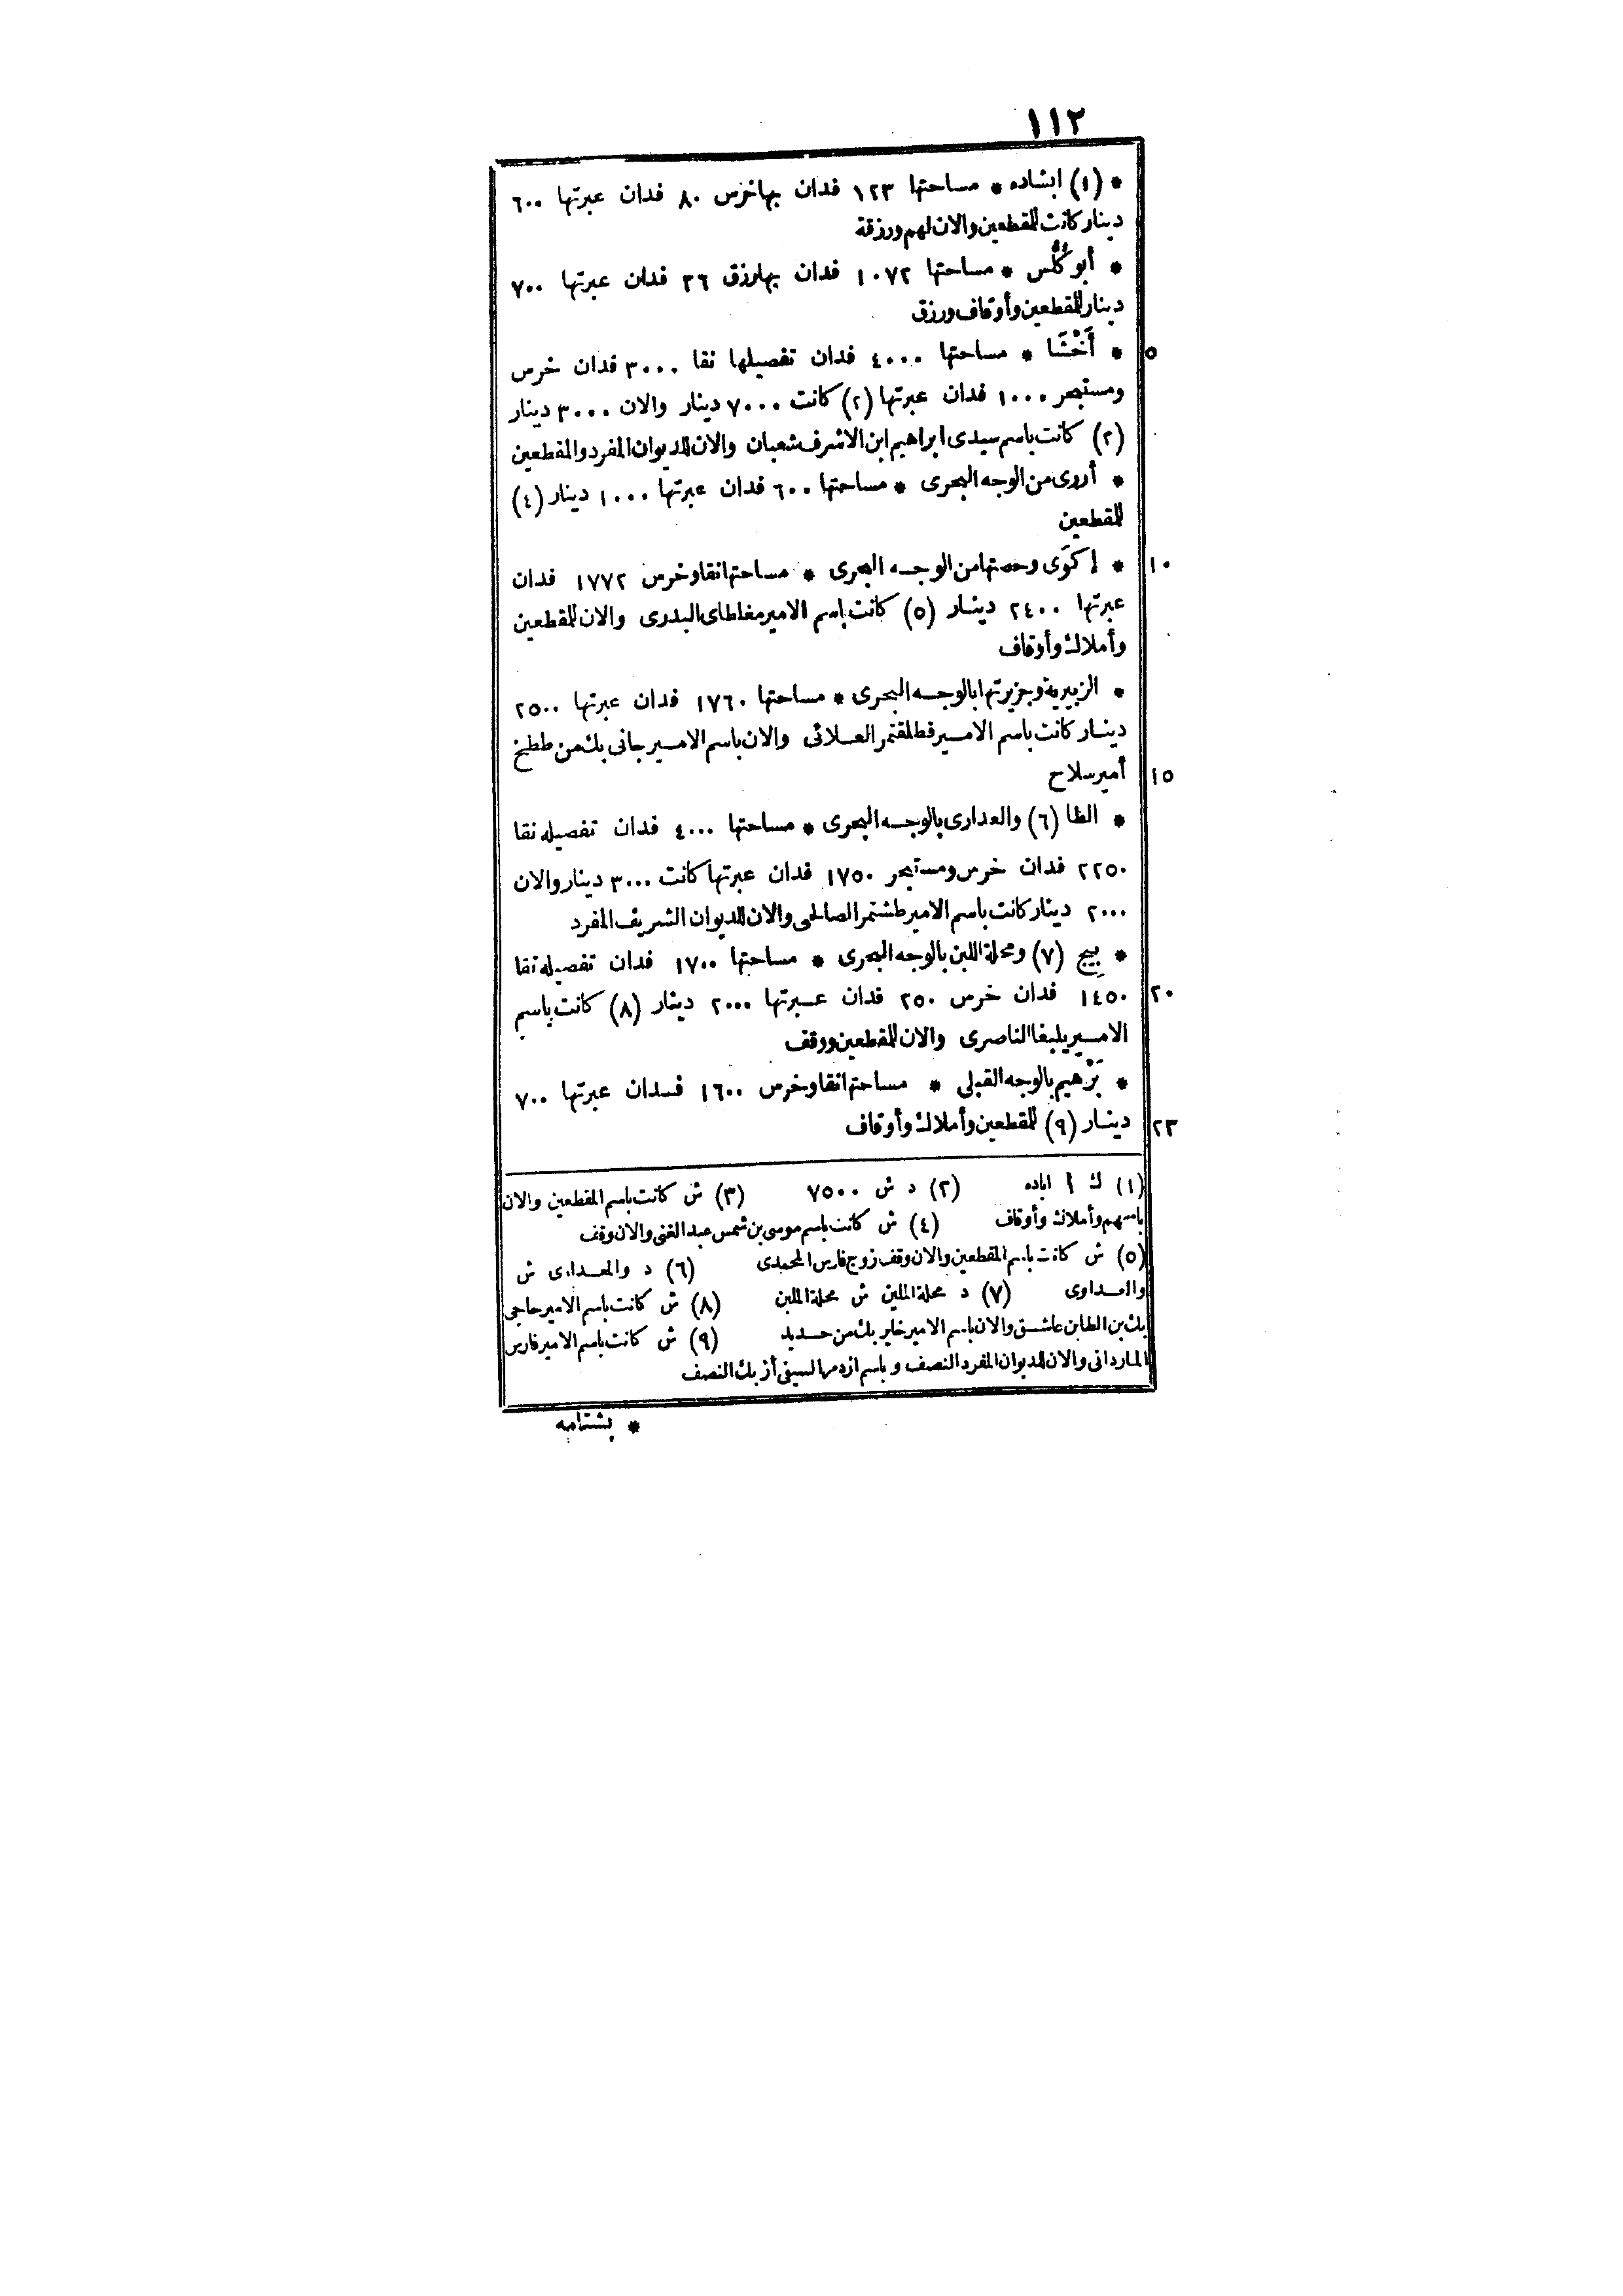 ١١٢
* (١) ابشاده * مساحتها ١٢٣ فدان بها خرس ٨٠ فدان عبرتها ٦٠٠
دينار كانت للمقطعين والان لهم ورزقة
* أبو كُلُس * مساحتها ١٠٧٢ فدان بها رزق ٣٦ فدان عبرتها ٧٠٠
دينار للمقطعين وأوقاف ورزق
٥ * أَخْشَا * مساحتها ٤٠٠٠ فدان تفصيلها نقا ٣٠٠٠ فدان خرس
ومستبحر ١٠٠٠ فدان عبرتها (٢) كانت ٧٠٠٠ دينار والان ٣٠٠٠ دينار
(٣) كانت باسم سيدى ابراهيم ابن الاشرف شعبان والان للديوان المفرد والمقطعين
* أروى من الوجه البحرى * مساحتها ٦٠٠ فدان عبرتها ١٠٠٠ دينار (٤)
للمقطعين
١٠ * إكوَى وحصتها من الوجه البحرى * مساحتها نقا وخرس ١٧٧٢ فدان
عبرتها ٢٤٠٠ دينار (٥) كانت باسم الامير مغلطاى البدرى والان للمقطعين
وأملاك وأوقاف
* الزبيرية وجزيرتها بالوجه البحرى * مساحتها ١٧٦٠ فدان عبرتها ٢٥٠٠
دينار كانت باسم الامير قطلقتمر العلائى والان باسم الامير جانى بك من ططخ
١٥ أمير سلاح
* الظا (٦) والعدارى بالوجه البحرى * مساحتها ٤٠٠٠ فدان تفصيله نقا
٢٢٥٠ فدان خرس ومستبحر ١٧٥٠ فدان عبرتها كانت ٣٠٠٠ دينار والان
٢٠٠٠ دينار كانت باسم الامير طشتمر الصالحى والان للديوان الشريف المفرد
* بِيج (٧) ومحلة اللبن بالوجه البحرى * مساحتها ١٧٠٠ فدان تفصيله نقا
٢٠ ١٤٥٠ فدان خرس ٢٥٠ فدان عبرتها ٢٠٠٠ دينار (٨) كانت باسم
الامير يلبغا الناصرى والان للمقطعين ووقف
* بَرْهيم بالوجه القبلى * مساحتها نقا وخرس ١٦٠٠ فدان عبرتها ٧٠٠
٢٣ دينار (٩) للمقطعين وأملاك وأوقاف
(١) ك ا اباده (٢) د ش ٧٥٠٠ (٣) ش كانت باسم المقطعين والان
باسهم وأملاك وأوقاف (٤) ش كانت باسم موسى بن شمس عبد الغنى والان وقف
(٥) ش كانت باسم المقطعين والان وقف زوج فارس المحمدى (٦) د والمعدادى ش
والعداوى (٧) د محلة الملين ش محلة الملبن (٨) ش كانت باسم الامير حاجى
بك بن الطابن عاشق والان باسم الامير خاير بك من حديد (٩) ش كانت باسم الامير فارس
الماردانى والان للديوان المفرد النصف و باسم ازدمر السيفى أزبك النصف
* بشتامه